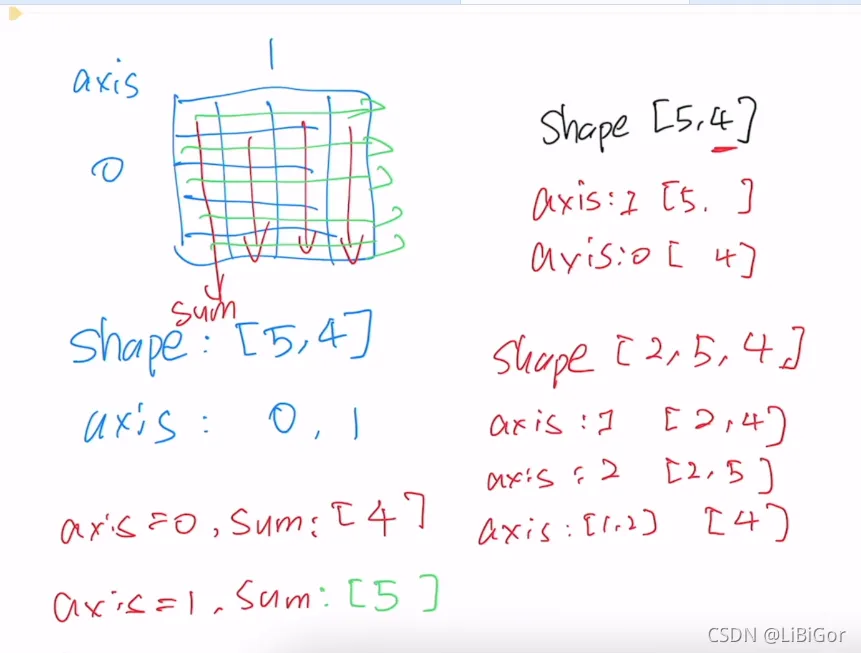 axis
1
0
sum
shape: [5,4]
axis: 0, 1
axis=0, sum: [4]
axis=1, sum: [5 ]
shape [5,4]
axis:1 [5. ]
axis:0 [ 4]
shape [2,5,4]
axis:1 [2,4]
axis:2 [2,5]
axis:[1,2] [4]
CSDN @LiBiGor